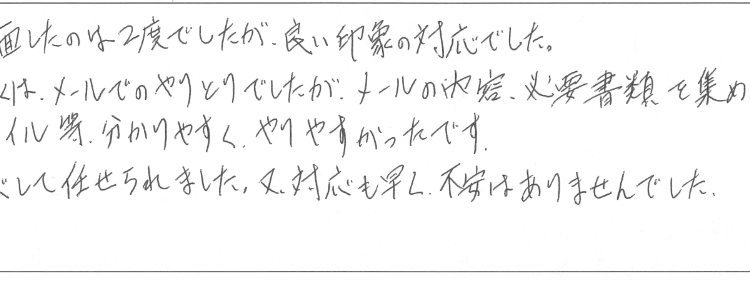 面したのは2度でしたが、良い印象の対応でした。
くは、メールでのやりとりでしたが、メールの内容、必要書類を集め
イル等、分かりやすく、やりやすかったです。
して任せられました。又、対応も早く、不安はありませんでした。